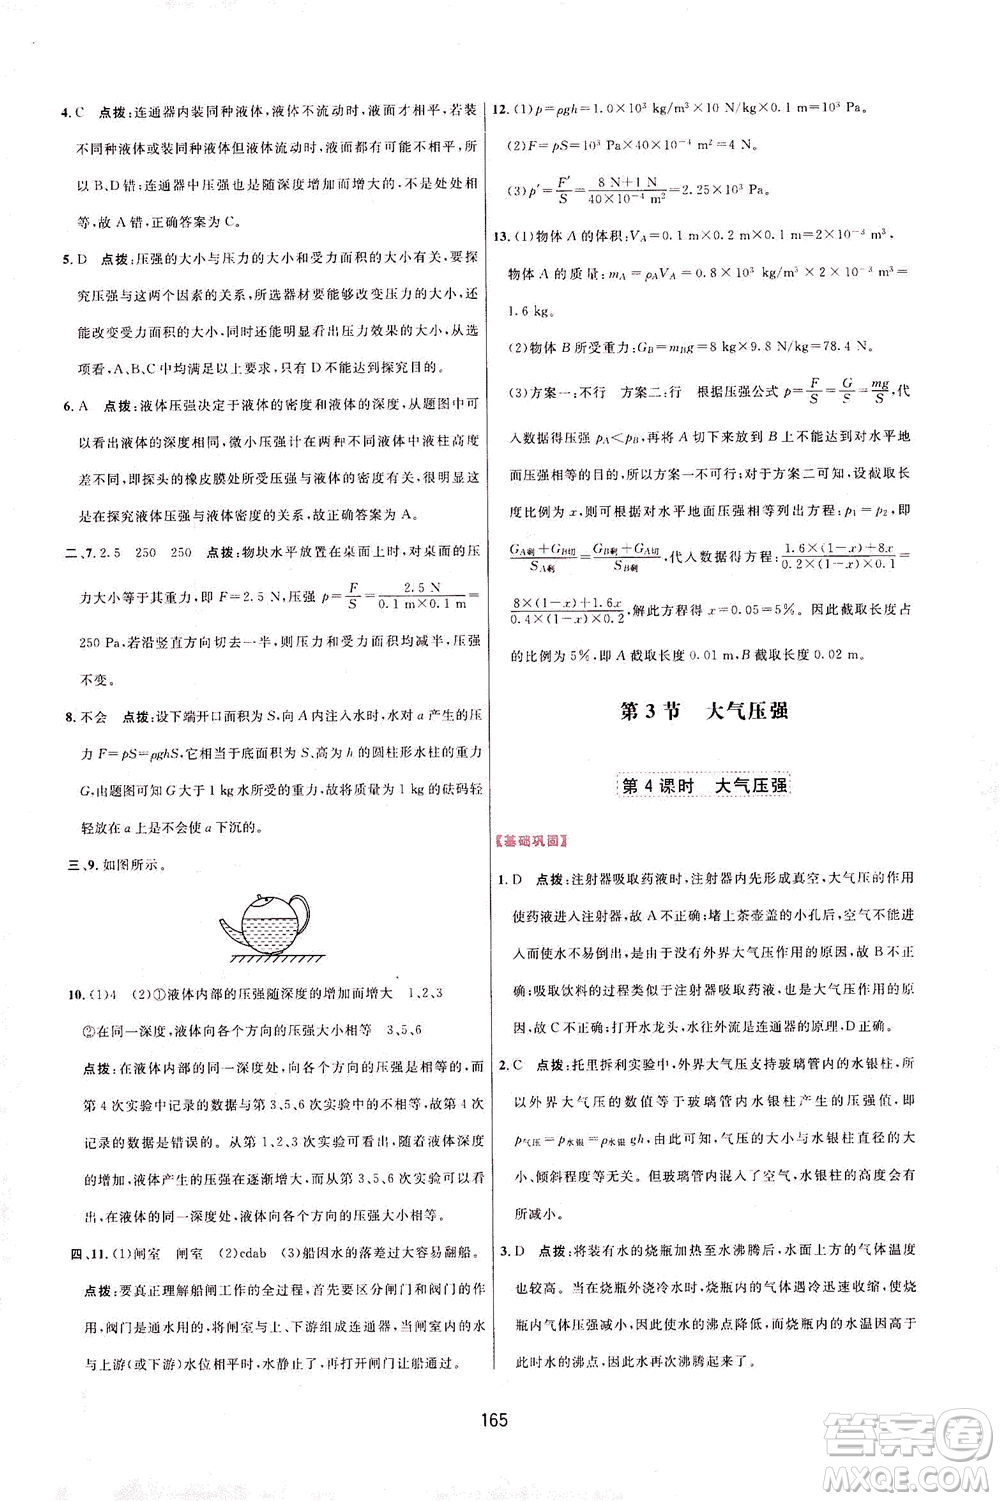 4. C 点拨:连通器内装同种液体,液体不流动时,液面才相平,若装
不同种液体或装同种液体但液体流动时,液面都有可能不相平,所
以 B、D 错;连通器中压强也是随深度增加而增大的,不是处处相
等,故 A 错,正确答案为 C。
5. D 点拨:压强的大小与压力的大小和受力面积的大小有关,要探
究压强与这两个因素的关系,所选器材要能够改变压力的大小,还
能改变受力面积的大小,同时还能明显看出压力效果的大小,从选
项看,A、B、C 中均满足以上要求,只有 D 不能达到探究目的。
6. A 点拨:液体压强决定于液体的密度和液体的深度,从题图中可
以看出液体的深度相同,微小压强计在两种不同液体中液柱高度
差不同,即探头的橡皮膜处所受压强与液体的密度有关,所以目的
是在探究液体压强与液体密度的关系,故正确答案为 A。
二、7. 2.5 250 250 点拨:物块水平放置在桌面上时,对桌面的压
力大小等于其重力,即 F=2.5 N,压强 p=F/S=2.5 N/(0.1 m×0.1 m)=
250 Pa,若沿竖直方向切去一半,则压力和受力面积均减半,压强
不变。
8. 不会 点拨:设下端开口面积为 S,向 A 内注入水时,水对 a 产生的压
力 F=pS=ρghS,它等于底面积为 S、高为 h 的圆柱形水柱的重力
G,由题图可知 G 大于 1 kg 水所受的重力,故将质量为 1 kg 的砝码轻
轻放在 a 上是不会使 a 下沉的。
三、9. 如图所示。
10. (1)4 (2)①液体内部的压强随深度的增加而增大 1、2、3
②在同一深度,液体向各个方向的压强大小相等 3、5、6
点拨:在液体内部的同一深度处,各个方向的压强大小相等,而
第 4 次实验中记录的数据与第 3、5、6 次中的不相等,故第 4 次
记录的数据是错误的。从第 1、2、3 次实验可看出,随着液体深度
的增加,液体产生的压强在逐渐增大,从第 3、5、6 次实验可以看
出,在液体的同一深度处,液体向各个方向的压强大小相等。
四、11. (1)闸室 闸室 (2)cdab (3)船因水的落差过大容易翻船。
点拨:要真正理解船闸工作的全过程,首先要区分闸门和阀门的作
用,阀门是通水用的,将闸室和上、下游组成连通器,当闸室内的水
与上游(或下游)水位相平时,水静止了,再打开闸门让船通过。
12. (1)p=ρgh=1.0×10³ kg/m³×10 N/kg×0.1 m=10³ Pa。
(2)F=pS=10³ Pa×40×10⁻⁴ m²=4 N。
(3)p′=F′/S=(8 N+1 N)/(40×10⁻⁴ m²)=2.25×10³ Pa。
13. (1)物体 A 的体积:V_A=0.1 m×0.2 m×0.1 m=2×10⁻³ m³,
物体 A 的质量:m_A=ρ_A V_A=0.8×10³ kg/m³×2×10⁻³ m³=
1.6 kg。
(2)物体 B 所受重力:G_B=m_B g=8 kg×9.8 N/kg=78.4 N。
(3)方案一:不行 方案二:行 根据压强公式 p=F/S=G/S=mg/S,代
入数据得压强 p_A<p_B,再将 A 切下来放到 B 上不能达到对水平地
面压强相等的目的,所以方案一不可行;对于方案二可知,设截取长
度比例为 x,则根据对水平地面压强相等列出方程:p₁=p₂,即
(G_A剩+G_B切)/S_A剩=(G_B剩+G_A切)/S_B剩,代入数据得方程:(1.6×(1-x)+8x)/(0.2×(1-x)×0.1)=
(8×(1-x)+1.6x)/(0.4×(1-x)×0.2),解此方程得 x=0.05=5%。因此截取长度占
的比例为 5%,即 A 截取长度 0.01 m,B 截取长度 0.02 m。
第 3 节 大气压强
第 4 课时 大气压强
【基础巩固】
1. D 点拨:注射器吸取药液时,注射器内先形成真空,大气压的作用
使药液进入注射器,故 A 不正确;堵上茶壶盖的小孔后,空气不能进
入而使水不易倒出,也是由于没有外界大气压作用的,故 B 不正
确;吸取饮料的过程类似于注射器吸取药液,是大气压作用的原因,
故 C 不正确;打开水龙头,水往外流是连通器的原理,D正确。
2. C 点拨:托里拆利实验中,外界大气压支持玻璃管内的水银柱,所
以外界大气压的数值等于玻璃管内水银柱产生的压强值,即
p气压=p水银=ρ水银gh,与其他无关,气压的大小与水银柱直径的大
小、倾斜程度等无关。因玻璃管内混入了空气,水银柱的高度会有
所减小。
3. D 点拨:将装有水的烧瓶加热至水沸腾后,水面上方的气体温度
也较高。当在烧瓶外浇冷水时,烧瓶内的气体遇冷迅速收缩,使烧
瓶内气体压强减小,因而使水的沸点降低,而烧瓶中的水温因高于
此时水的沸点,因而水再次沸腾起来了。
165
答案圈
MXQE.COM